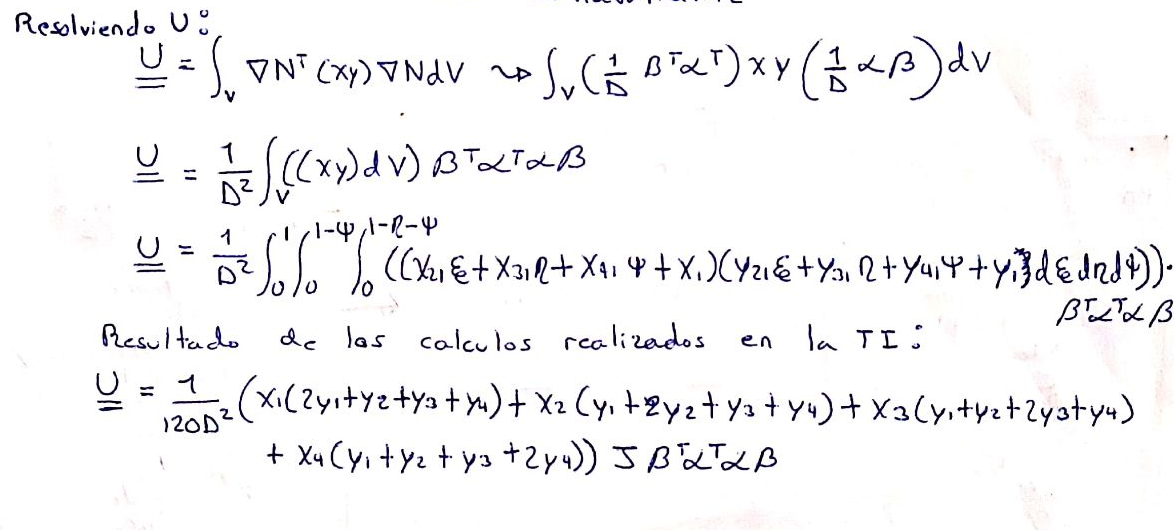 Resolviendo U:
U = ∫_V ∇N^T (xy) ∇N dV ⇝ ∫_V (1/D β^T α^T) x y (1/D α β) dV
U = 1/D² ∫_V ((xy) dV) β^T α^T α β
U = 1/D² ∫_0^1 ∫_0^{1-ψ} ∫_0^{1-η-ψ} ((x₂₁ ξ + x₃₁ η + x₄₁ ψ + x₁)(y₂₁ ξ + y₃₁ η + y₄₁ ψ + y₁} dξ dη dψ)).
β^T α^T α β
Resultado de los calculos realizados en la TI:
U = 1/120D² (x₁(2y₁+y₂+y₃+y₄) + x₂(y₁+2y₂+y₃+y₄) + x₃(y₁+y₂+2y₃+y₄)
+ x₄(y₁+y₂+y₃+2y₄)) J β^T α^T α β